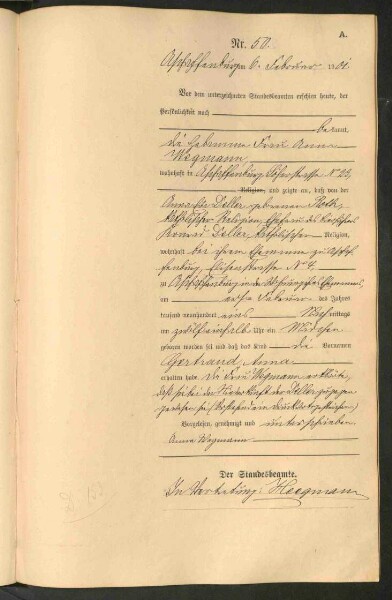 A.
Nr. 50.
Aschaffenburg am 6. Februar 1901.
Vor dem unterzeichneten Standesbeamten erschien heute, der
Persönlichkeit nach
bekannt,
die Hebamme Frau Anna
Wegmann,
wohnhaft in Aschaffenburg, N° 23,
Religion, und zeigte an, daß von der
Anna Zeller, geborenen Roth,
katholischer Religion, Ehefrau des
Konrad Zeller, katholischer Religion,
wohnhaft bei ihrem Ehemanne zu Aschaf-
fenburg, N° 4,
zu Aschaffenburg in der Wohnung ihres Ehemannes,
am Februar des Jahres
tausend neunhundert eins Nachmittags
um Uhr ein Mädchen
geboren worden sei und daß das Kind die Vornamen
Gertraud Anna
erhalten habe. Die Frau Wegmann erklärte,
daß sie bei der Niederkunft der Zeller zugegen
gewesen sei.
Vorgelesen, genehmigt und unterschrieben
Anna Wegmann
Der Standesbeamte.
In Vertretung: Heegmann